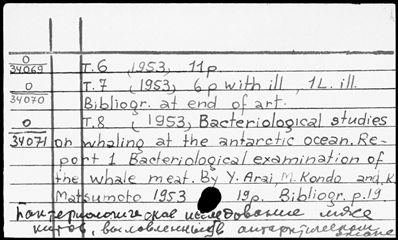 0
34069 T.6 (1953) 11p.
0 T.7 (1953) 6p with ill, 1L. ill.
34070 Bibliogr. at end of art.
0 T.8 (1953) Bacteriological studies
34071 on whaling at the antarctic ocean. Re-
port 1 Bacteriological examination of
the whale meat. By Y. Arai, M. Kondo and K.
Matsumoto 1953 19p. Bibliogr. p.19.
Бактериологическое исследование мяса
китов, выловленных в антарктическом
океане